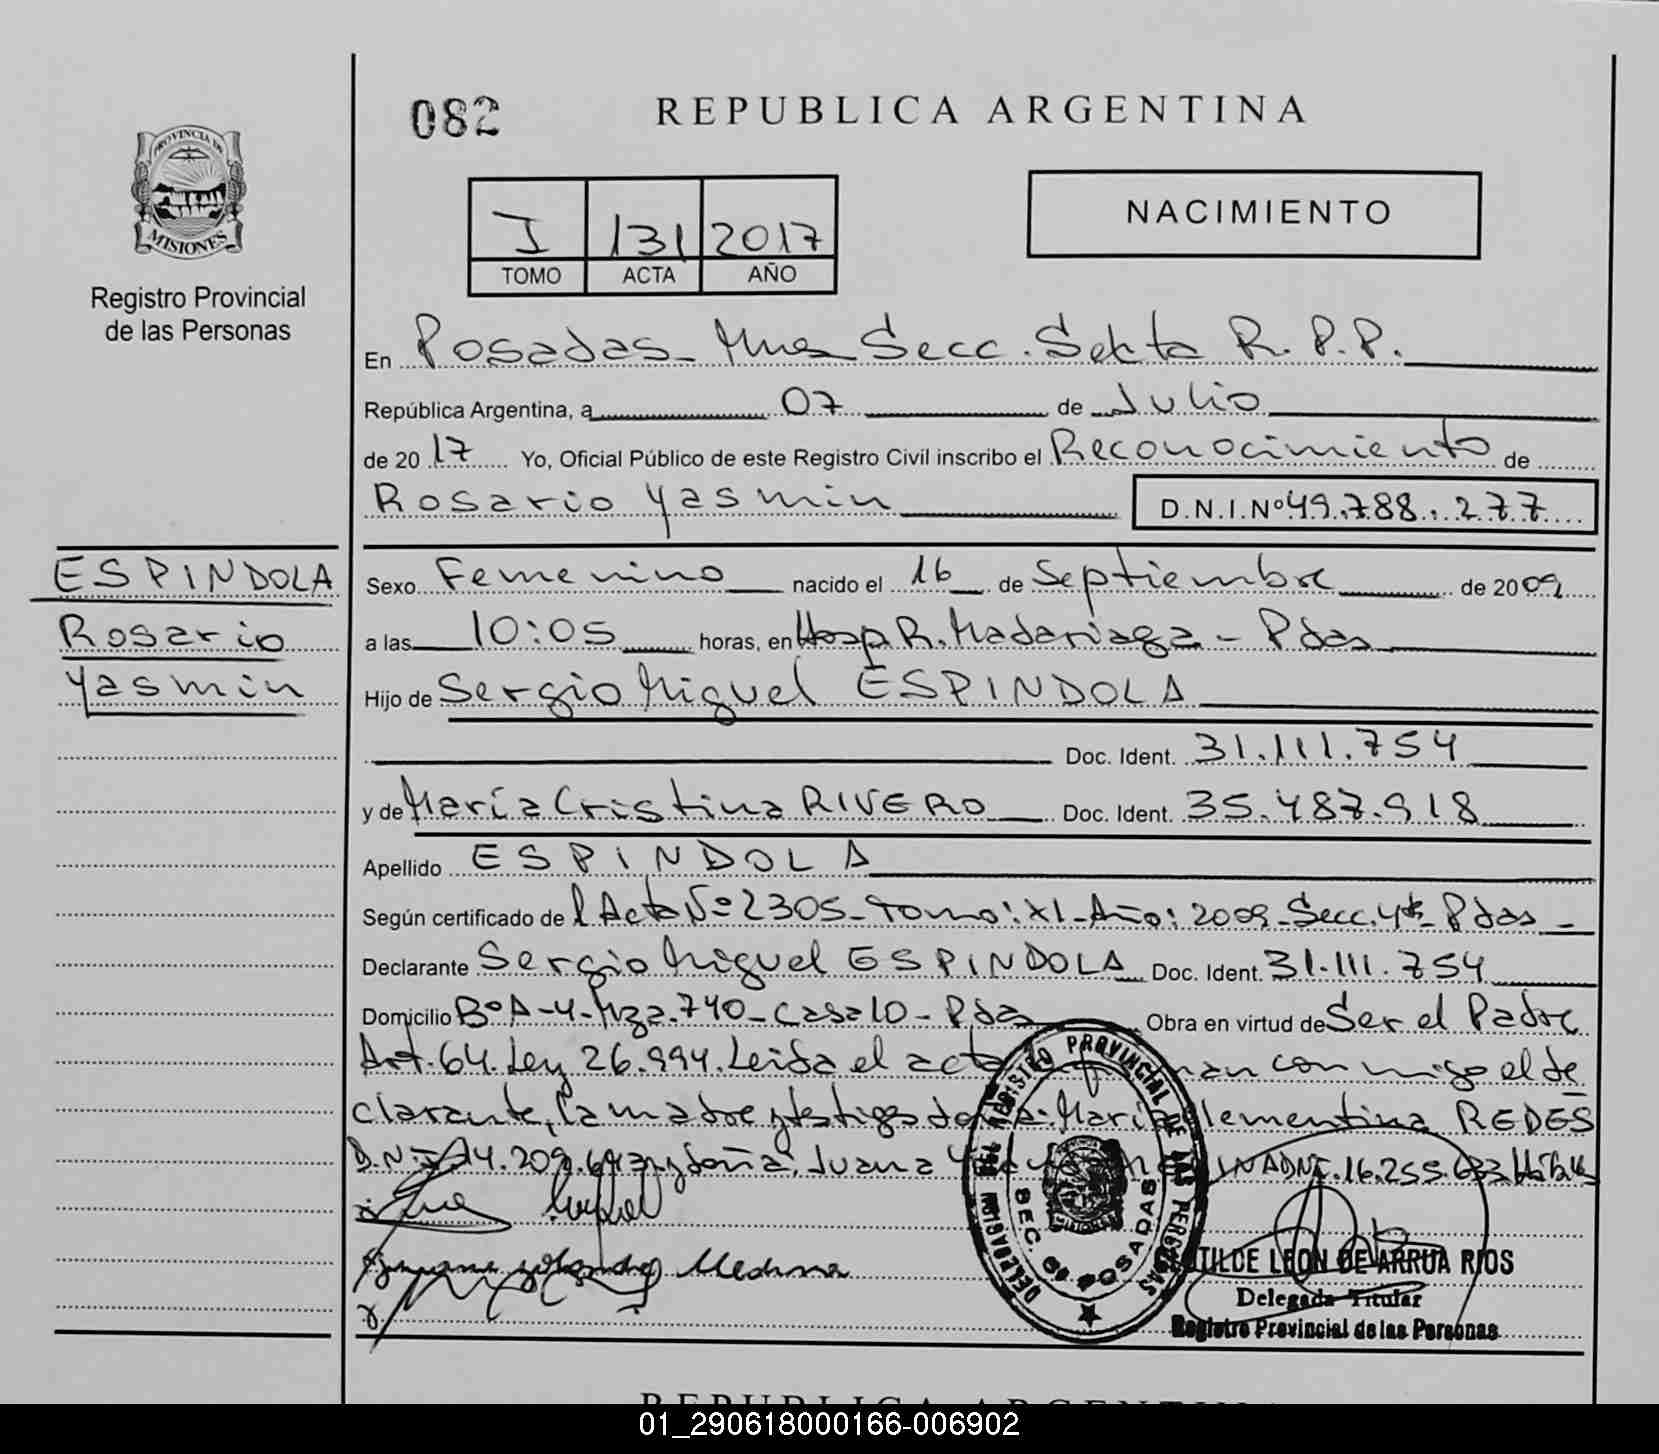 082
REPUBLICA ARGENTINA
PROVINCIA DE
MISIONES
Registro Provincial
de las Personas
I 131 2017
TOMO ACTA AÑO
NACIMIENTO
En Posadas - Mnes Secc. Sexta R.P.P.
República Argentina, a 07 de Julio
de 2017 Yo, Oficial Público de este Registro Civil inscribo el Reconocimiento de
Rosario Yasmin D.N.I.Nº 49.788.277
ESPINDOLA
Rosario
Yasmin
Sexo Femenino nacido el 16 de Septiembre de 2009
a las 10:05 horas, en Hosp R. Madariaga - Pdas
Hijo de Sergio Miguel ESPINDOLA
Doc. Ident. 31.111.754
y de María Cristina RIVERO Doc. Ident. 35.487.918
Apellido ESPINDOLA
Según certificado de l Acta Nº 2305 - Tomo: XI - Año: 2009 - Secc. 4ta - Pdas -
Declarante Sergio Miguel ESPINDOLA Doc. Ident. 31.111.754
Domicilio Bº A-4 - Mza. 740 - Casa 10 - Pdas Obra en virtud de Ser el Padre
Art. 64. Ley 26.994. Leida el acta man con migo el de
clarante, la madre y testigos María Clementina REDES
D.N.I. y doña, Juana 16.255.
Medina
DELEGACION DEL REGISTRO PROVINCIAL DE LAS PERSONAS
SEC. 6ª POSADAS
TILDE LEON DE ARRUA RIOS
Delegada Titular
Registro Provincial de las Personas
REPUBLICA ARGENTINA
01_290618000166-006902